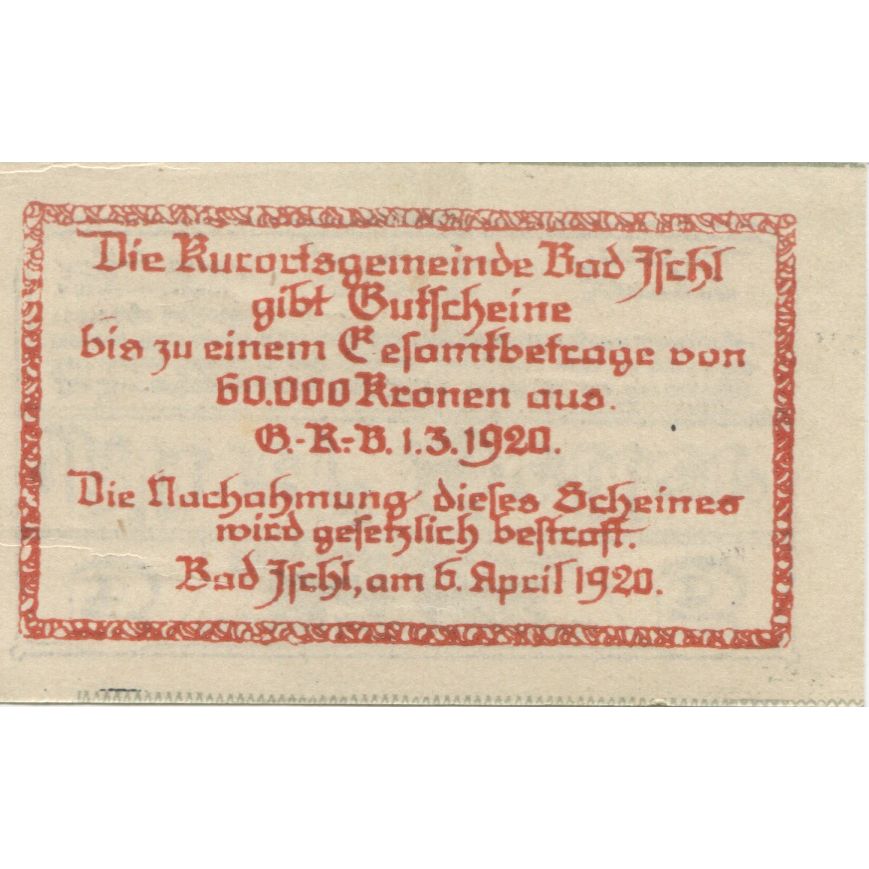 Die Kurortsgemeinde Bad Ischl
gibt Gutscheine
bis zu einem Gesamtbetrage von
60.000 Kronen aus.
G.-R.-B. 1.3.1920.
Die Nachahmung dieses Scheines
wird gesetzlich bestraft.
Bad Ischl, am 6. April 1920.